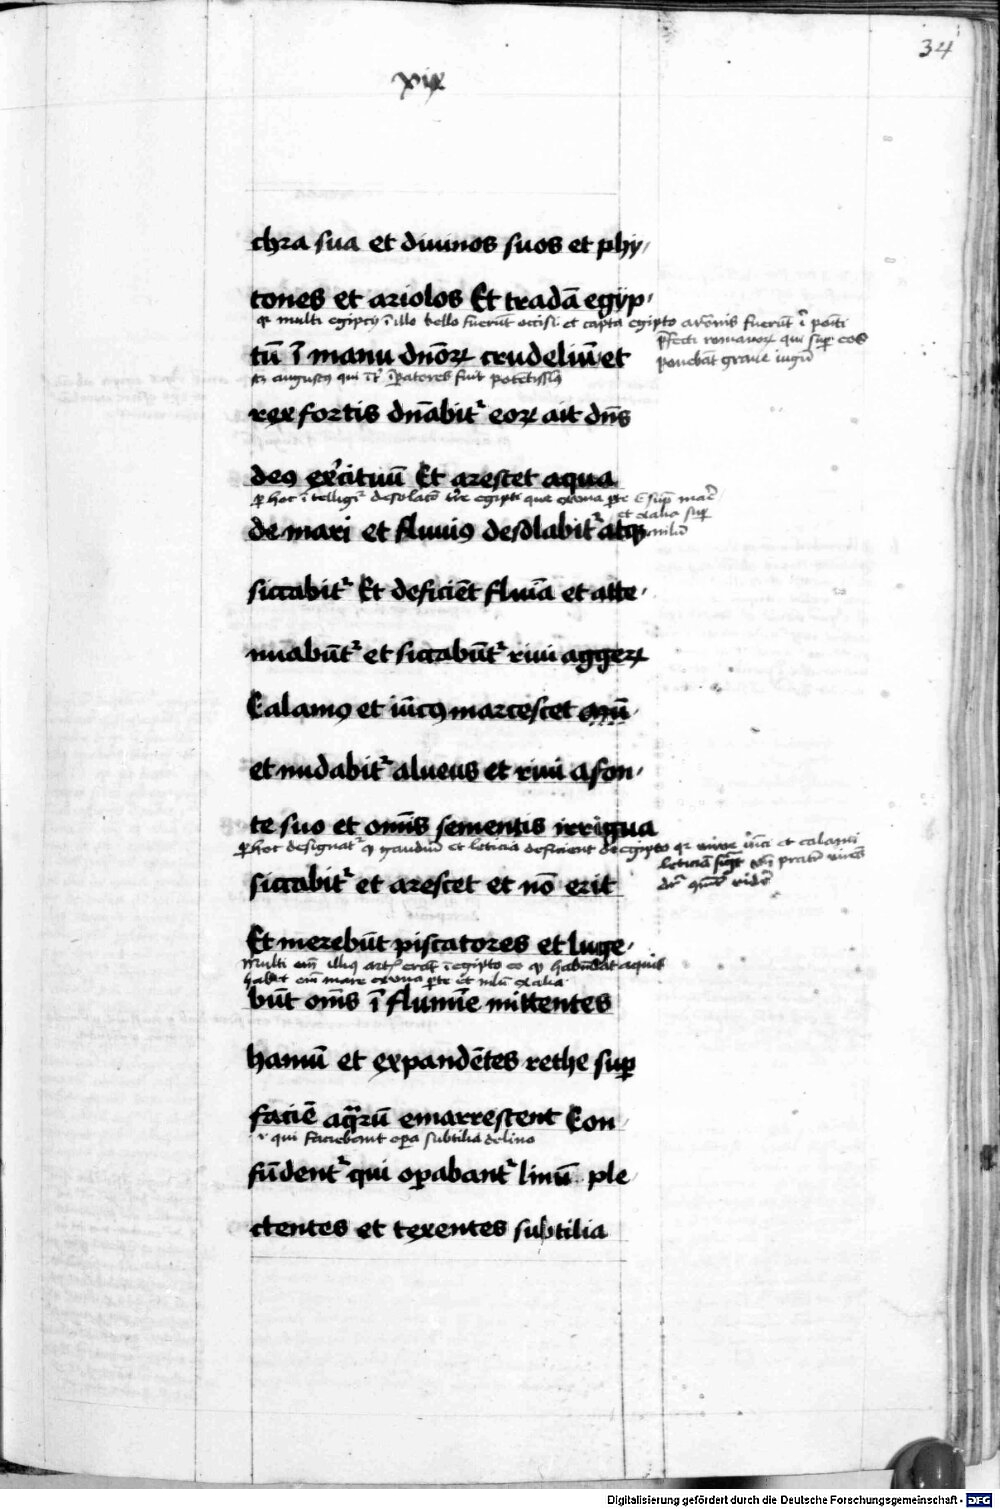 34
xix
chra sua et diuinos suos et phy
tones et ariolos Et tradā egyp
qr multi egipcij ī illo bello fuerūt occisi et capta egipto
p̄fecti romanoꝝ qui suꝑ eos
ponebāt graue iugū
tū ī manu dnōꝝ crudeliū et
augustꝰ qui īt̄ īꝑatores fuit potētissīꝰ
rex fortis dn̄abit᷑ eoꝝ ait dn̄s
deꝰ ex̄cituū Et arescet aqua
ꝑ hoc ītelligit᷑ desolatō t̄re egipti que ex una ꝑte ē suꝑ mare
et ex alia suꝑ
nilū
de mari et fluuiꝰ desolabit᷑ atqꝫ
siccabit᷑ Et deficiēt fluīa et atte
nuabūt᷑ et siccabūt᷑ riui aggeꝝ
Calamꝰ et iūcꝰ marcescet
et nudabit᷑ alueus et riui a fon
te suo et om̄is sementis irrigua
ꝑ hoc designat᷑ qꝫ gaudiū et leticia deficient de egipto qr iūci et calami
leticiā
siccabit᷑ et arescet et nō erit
Et merebūt piscatores et luge
Multi em̄ illiꝰ artis erāt ī egipto eo qꝫ habūdat aquis
habet em̄ mare ex una ꝑte et nilū ex alia
būt om̄s ī flumīe mittentes
hamū et expandētes rethe suꝑ
faciē aq̄rū emarcescent Con
i qui faciebant oꝑa subtilia de lino
fūdent᷑ qui oꝑabant᷑ linū ple
ctentes et texentes subtilia
Digitalisierung gefördert durch die Deutsche Forschungsgemeinschaft - DFG